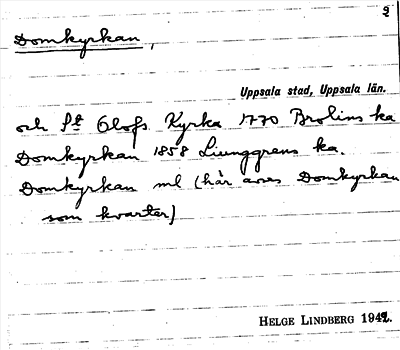 2
Domkyrkan,
Uppsala stad, Uppsala län.
och St Olofs Kyrka 1770 Brolins ka
Domkyrkan 1858 Ljunggrens ka.
Domkyrkan ml (här avses Domkyrkan
som kvarter)
HELGE LINDBERG 1942.